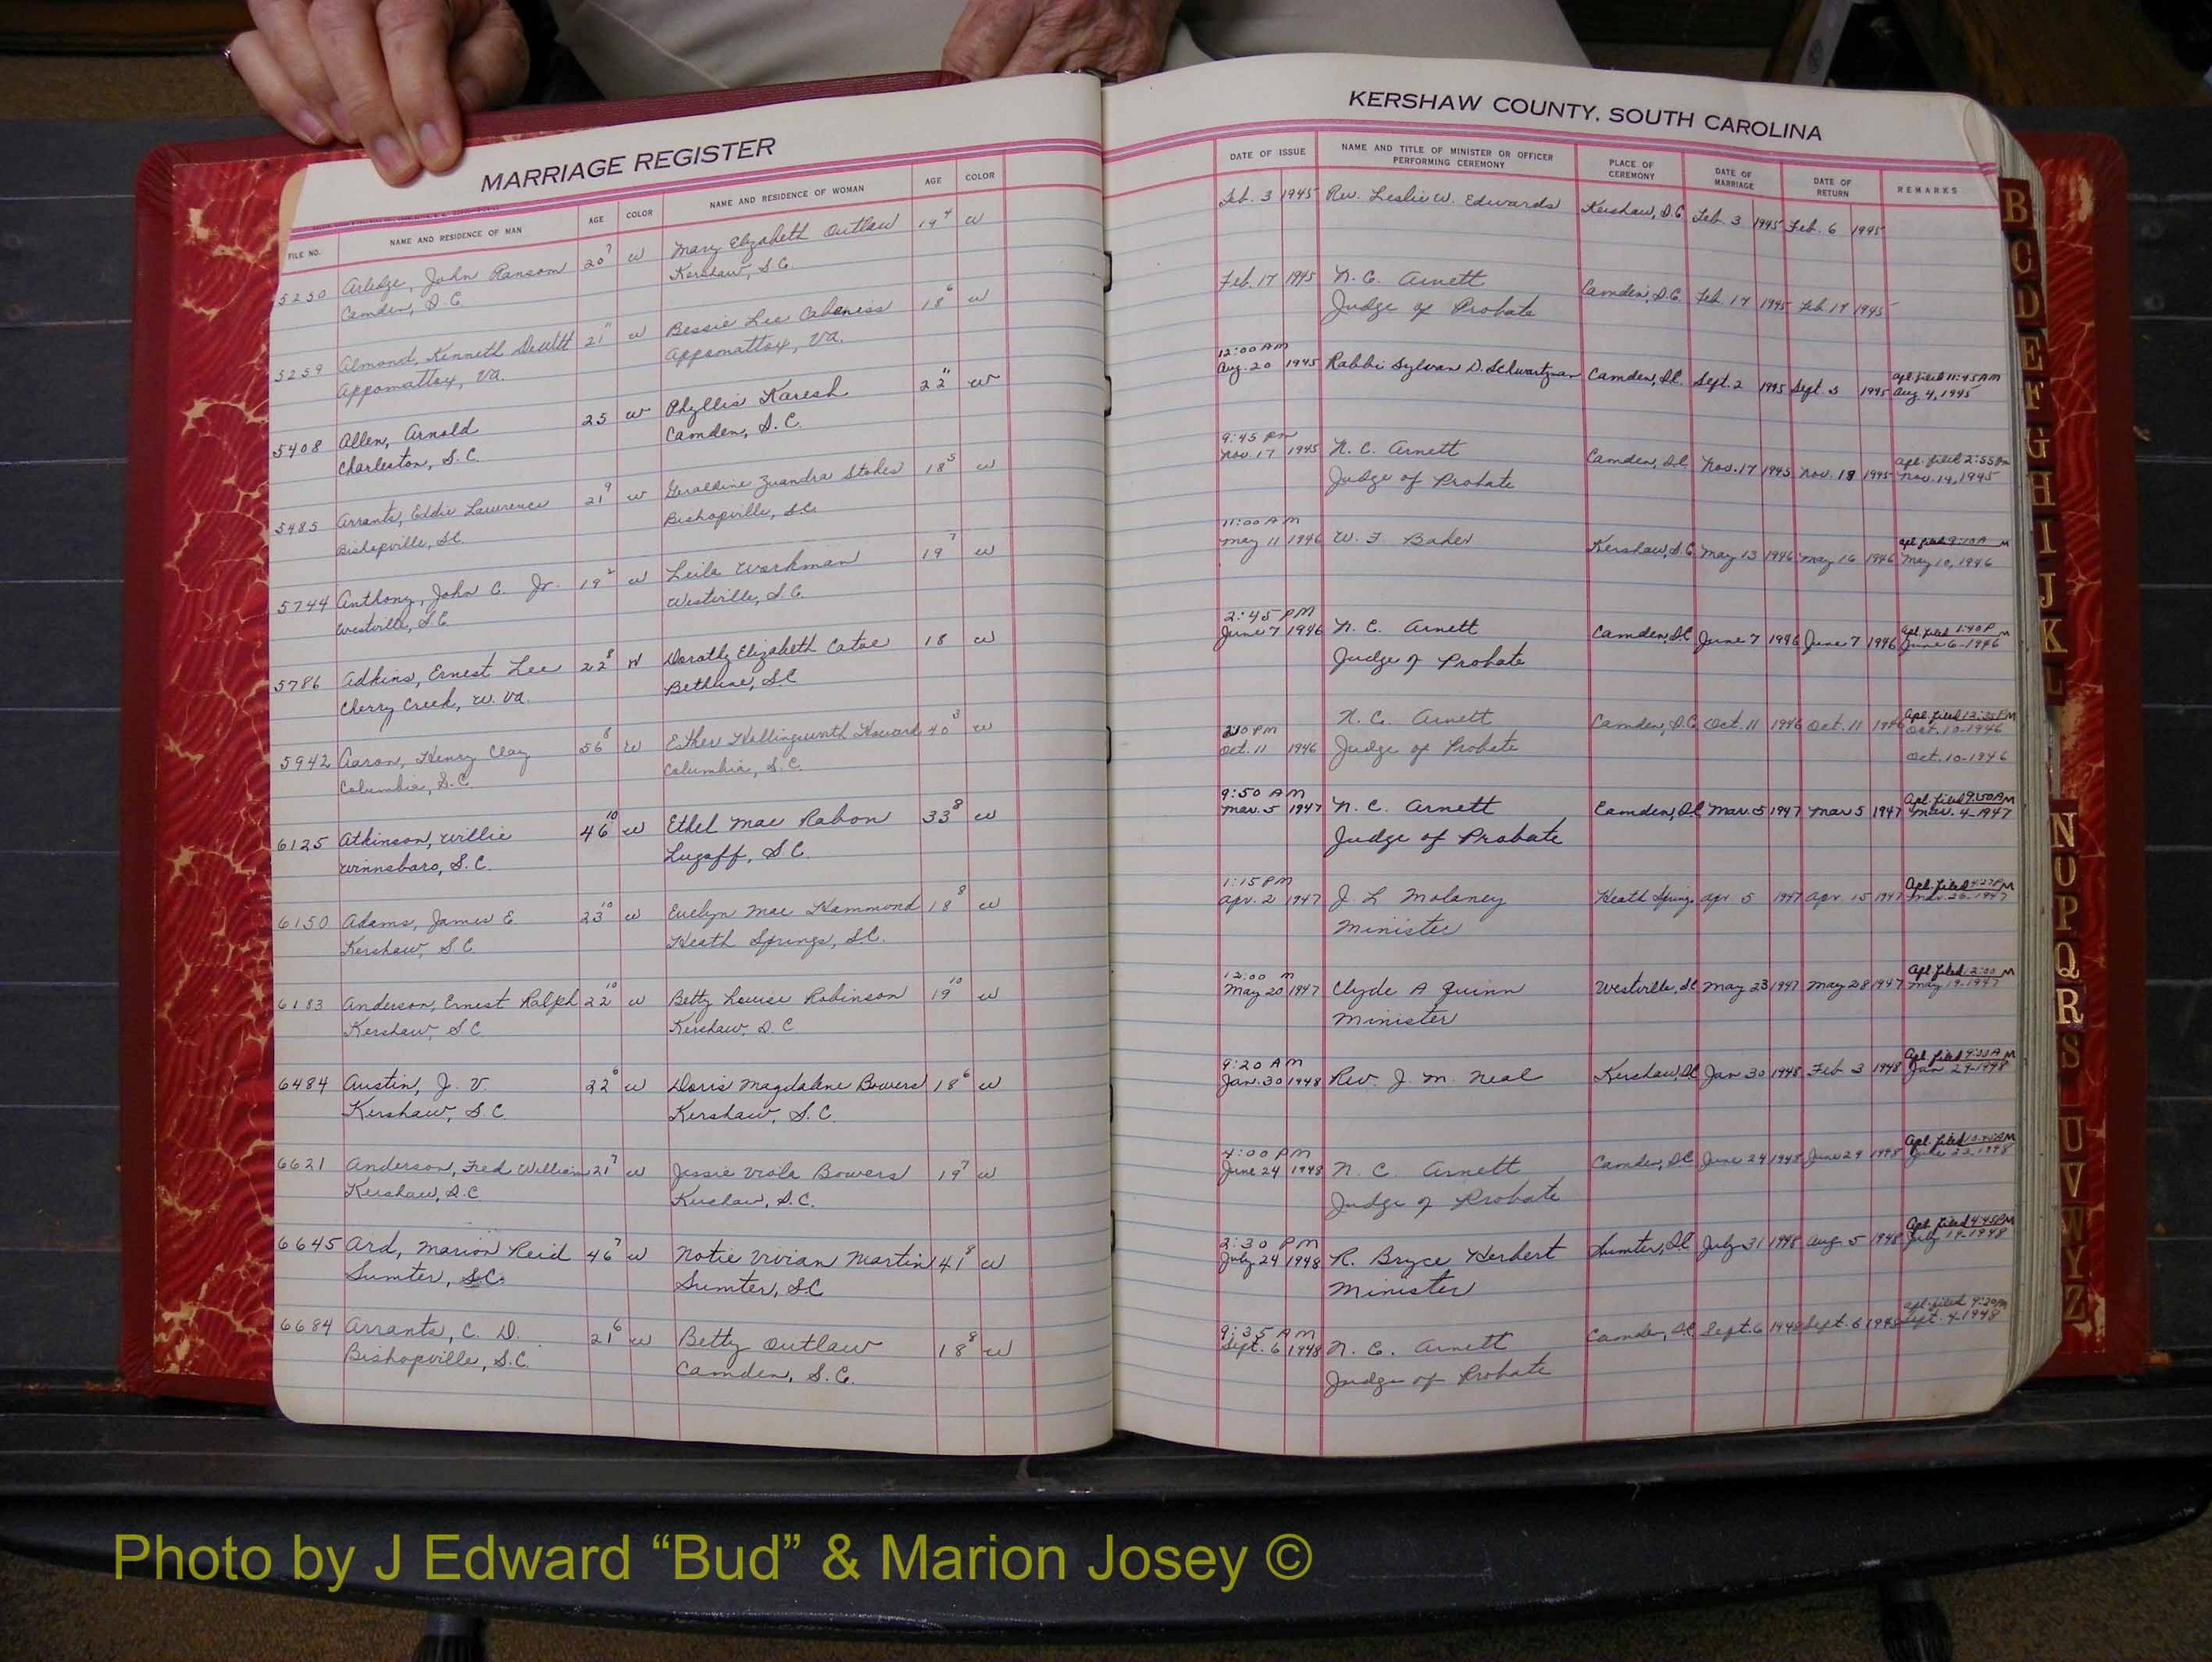 MARRIAGE REGISTER
KERSHAW COUNTY, SOUTH CAROLINA
FILE NO. NAME AND RESIDENCE OF MAN AGE COLOR NAME AND RESIDENCE OF WOMAN AGE COLOR
DATE OF ISSUE NAME AND TITLE OF MINISTER OR OFFICER PERFORMING CEREMONY PLACE OF CEREMONY DATE OF MARRIAGE DATE OF RETURN REMARKS
5250 Arledge, John Ransom 20 7 W Mary Elizabeth Outlaw 19 4 W Feb. 3 1945 Rev. Leslie W. Edwards Kershaw, S.C. Feb. 3 1945 Feb. 6 1945
Camden, S.C. Kershaw, S.C.
5259 Almond, Kenneth DeWitt 21 11 W Bessie Lee 18 6 W Feb. 17 1945 N. C. Arnett Camden, S.C. Feb. 17 1945 Feb 17 1945
Appomattox, Va. Appomattox, Va. Judge of Probate
5408 Allen, Arnold 25 W Phyllis Karesh 22 11 W 12:00 AM Aug. 20 1945 Rabbi Sylvan D. Schwartzman Camden, S.C. Sept. 2 1945 Sept. 3 1945 Apl. filed 11:45 AM
Charleston, S.C. Camden, S.C. Aug 4, 1945
5485 Arrants, Eddie Lawrence 21 9 W Geraldine Zuandra Stokes 18 5 W 9:45 PM Nov. 17 1945 N. C. Arnett Camden, S.C. Nov. 17 1945 Nov. 19 1945 Apl. filed 2:55 PM
Bishopville, S.C. Bishopville, S.C. Judge of Probate Nov. 14, 1945
5744 Anthony, John C. Jr. 19 2 W Leila Workman 19 7 W 11:00 AM May 11 1946 W. F. Baker Kershaw, S.C. May 13 1946 May 16 1946 Apl filed 9:10 A M
Westville, S.C. Westville, S.C. May 10, 1946
5786 Adkins, Ernest Lee 22 8 W Dorathy Elizabeth Catoe 18 W 2:45 PM June 7 1946 N. C. Arnett Camden, S.C. June 7 1946 June 7 1946 Apl. filed 1:40 P M
Cherry Creek, W. Va. Bethune, S.C. Judge of Probate June 6-1946
5942 Aaron, Henry Clay 56 8 W Esther Hollingsworth Howard 40 3 W Oct. 11 1946 N. C. Arnett Camden, S.C. Oct. 11 1946 Oct. 11 1946 Apl. filed 12:35 PM
Columbia, S.C. Columbia, S.C. Judge of Probate Oct. 10-1946
Oct. 10-1946
6125 Atkinson, Willie 46 10 W Ethel Mae Rabon 33 8 W 9:50 AM Mar. 5 1947 N. C. Arnett Camden, S.C. Mar. 5 1947 Mar 5 1947 Apl. filed 9:50 AM
Winnsboro, S.C. Lugoff, S.C. Judge of Probate Mar. 4-1947
6150 Adams, James E 23 10 W Evelyn Mae Hammond 18 8 W 1:15 PM Apr. 2 1947 J. L Molaney Heath Springs Apr. 5 1947 Apr. 15 1947 Apl. filed 4:27 PM
Kershaw, S.C. Heath Springs, S.C. Minister Mar. 26-1947
6183 Anderson, Ernest Ralph 22 10 W Betty Louise Robinson 19 10 W 12:00 M May 20 1947 Clyde A Quinn Westville, SC May 23 1947 May 28 1947 Apl. filed 12:00 M
Kershaw, S.C Kershaw, S.C Minister May 19-1947
6484 Austin, J. V. 22 6 W Doris Magdalene Bowers 18 6 W 9:20 AM Jan. 30 1948 Rev. J. M. Neal Kershaw, SC Jan 30 1948 Feb 3 1948 Apl. filed 9:30 A M
Kershaw, S.C Kershaw, S.C. Jan 29-1948
6621 Anderson, Fred William 21 7 W Jessie Viola Bowers 19 7 W 4:00 PM June 24 1948 N. C. Arnett Camden, SC June 24 1948 June 29 1948 Apl. filed
Kershaw, S.C Kershaw, S.C. Judge of Probate 1948
6645 Ard, Marion Reid 46 7 W Notie Vivian Martin 41 8 W 2:30 PM July 24 1948 R. Bryce Herbert Sumter, SC July 31 1948 Aug. 5 1948 Apl. filed 4:45 PM
Sumter, S.C. Sumter, S.C Minister July 19-1948
6684 Arrants, C. D. 21 6 W Betty Outlaw 18 8 W 9:35 AM Sept. 6 1948 N. C. Arnett Camden, S.C Sept. 6 1948 Sept. 6 1948 Apl. filed 9:20
Bishopville, S.C. Camden, S.C. Judge of Probate Sept. 4-1948
B
C
D
E
F
G
H
I
J
K
L
N
O
P
Q
R
S
U
V
W
Y
Z
Photo by J Edward “Bud” & Marion Josey ©